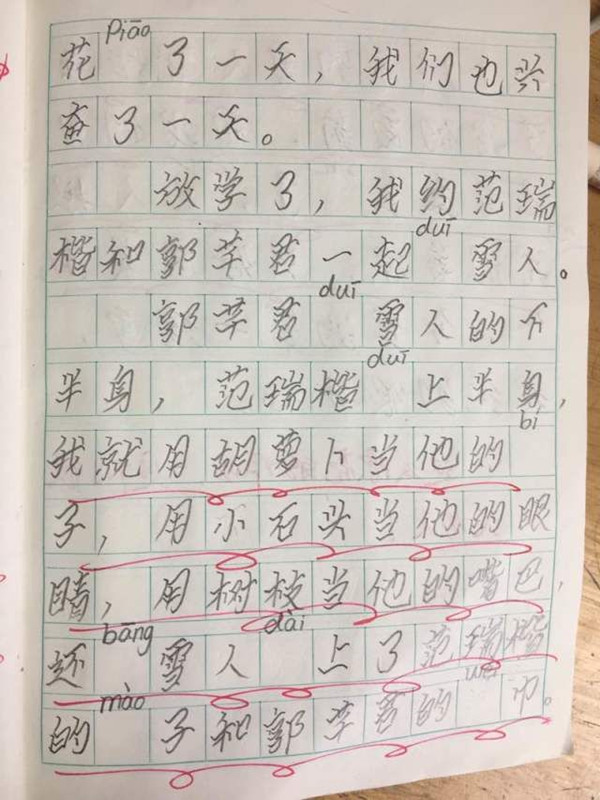 花piāo了一天，我们也兴
奋了一天。
放学了，我约范瑞
楷和郭芊君一起duī雪人。
郭芊君duī雪人的下
半身，范瑞楷duī上半身，
我就用胡萝卜当他的bí
子，用小石头当他的眼
睛，用树枝当他的嘴巴，
还bāng雪人dài上了范瑞楷
的mào子和郭芊君的wéi巾。